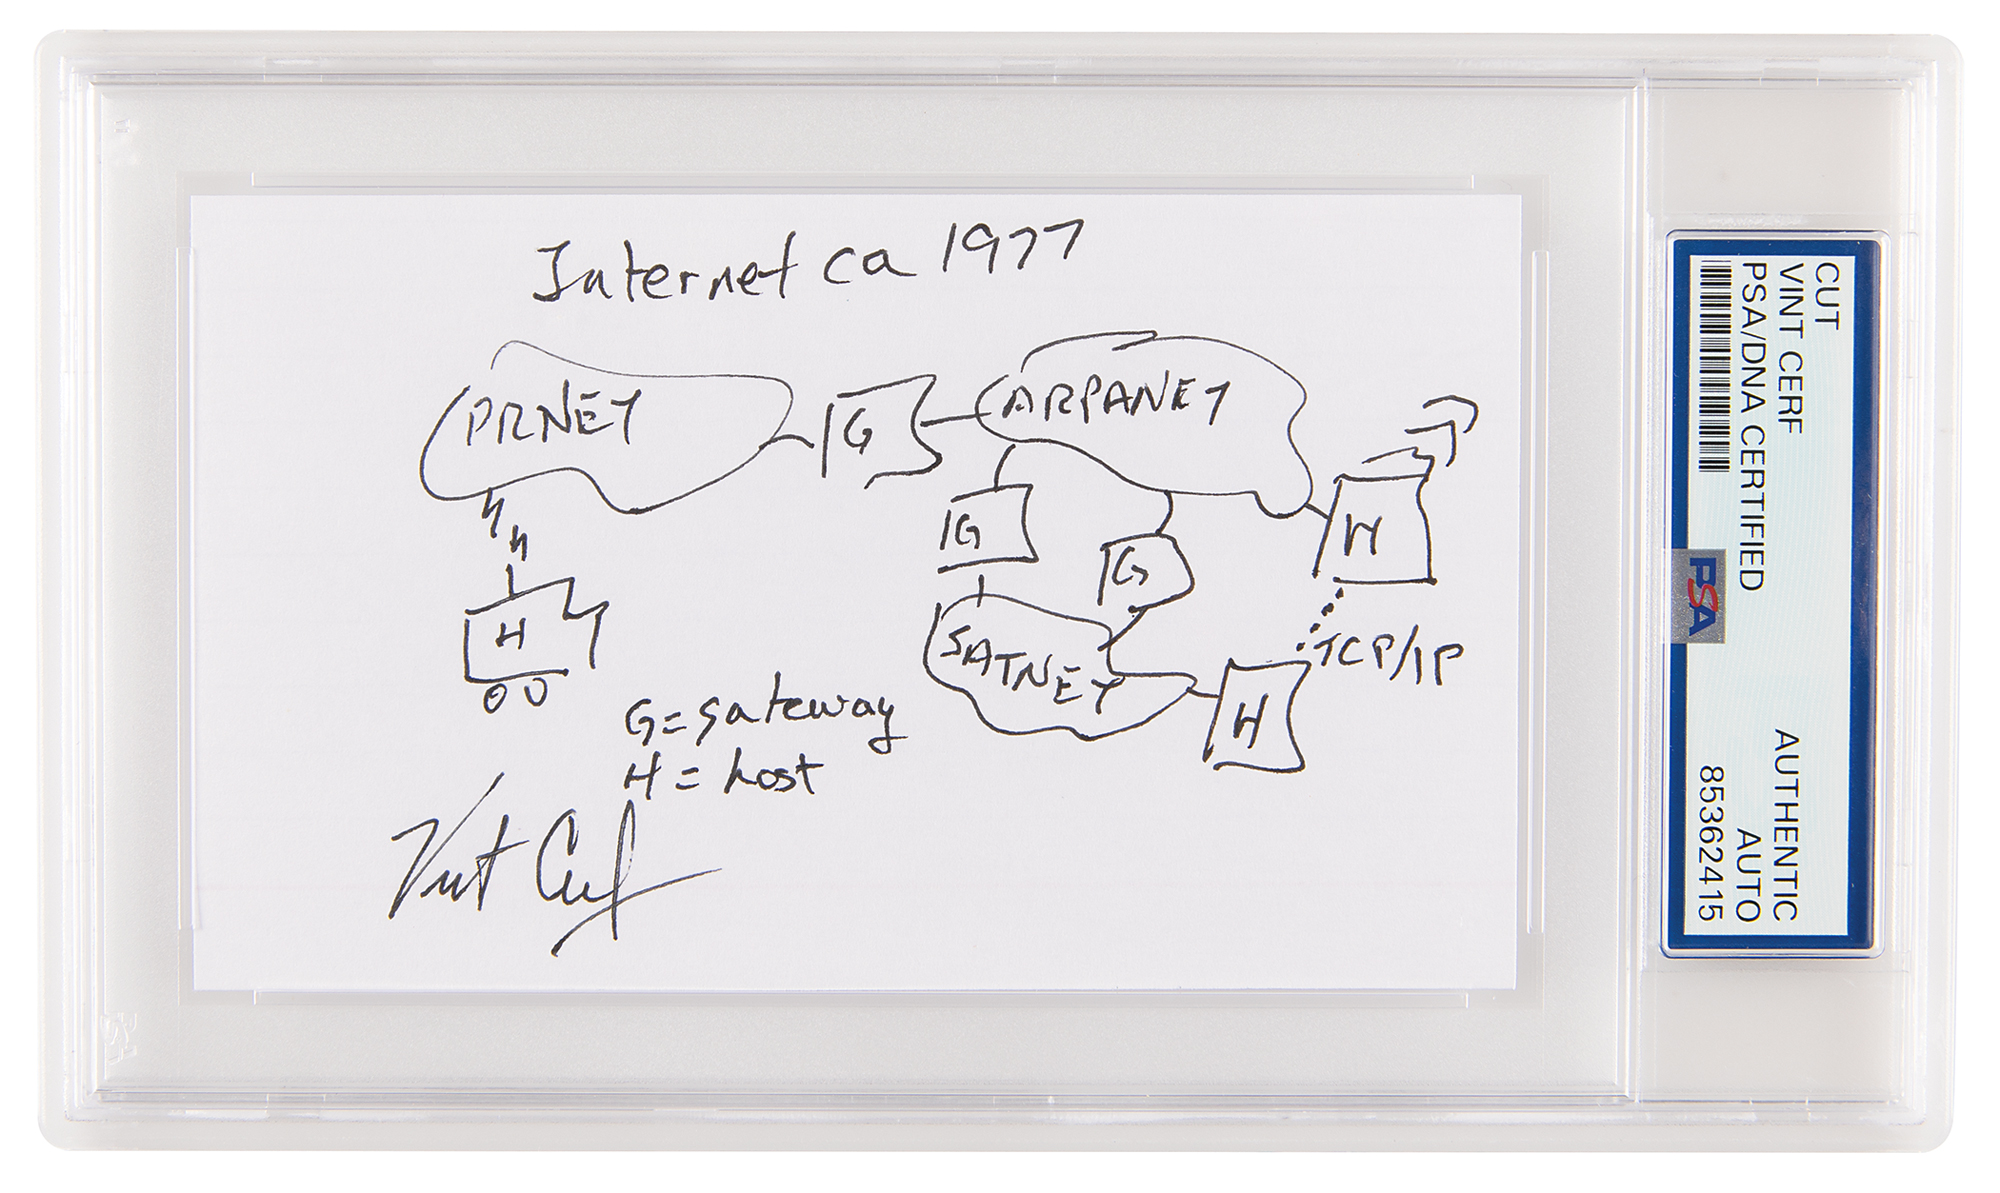 Internet ca 1977
PRNET
G
ARPANET
G
G
H
H
SATNET
TCP/IP
H
G = gateway
H = host
Vint Cerf
CUT
VINT CERF
PSA/DNA CERTIFIED
AUTHENTIC
AUTO
85362415
PSA